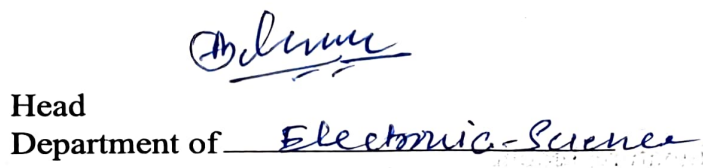 Head
Department of Electronic-Science